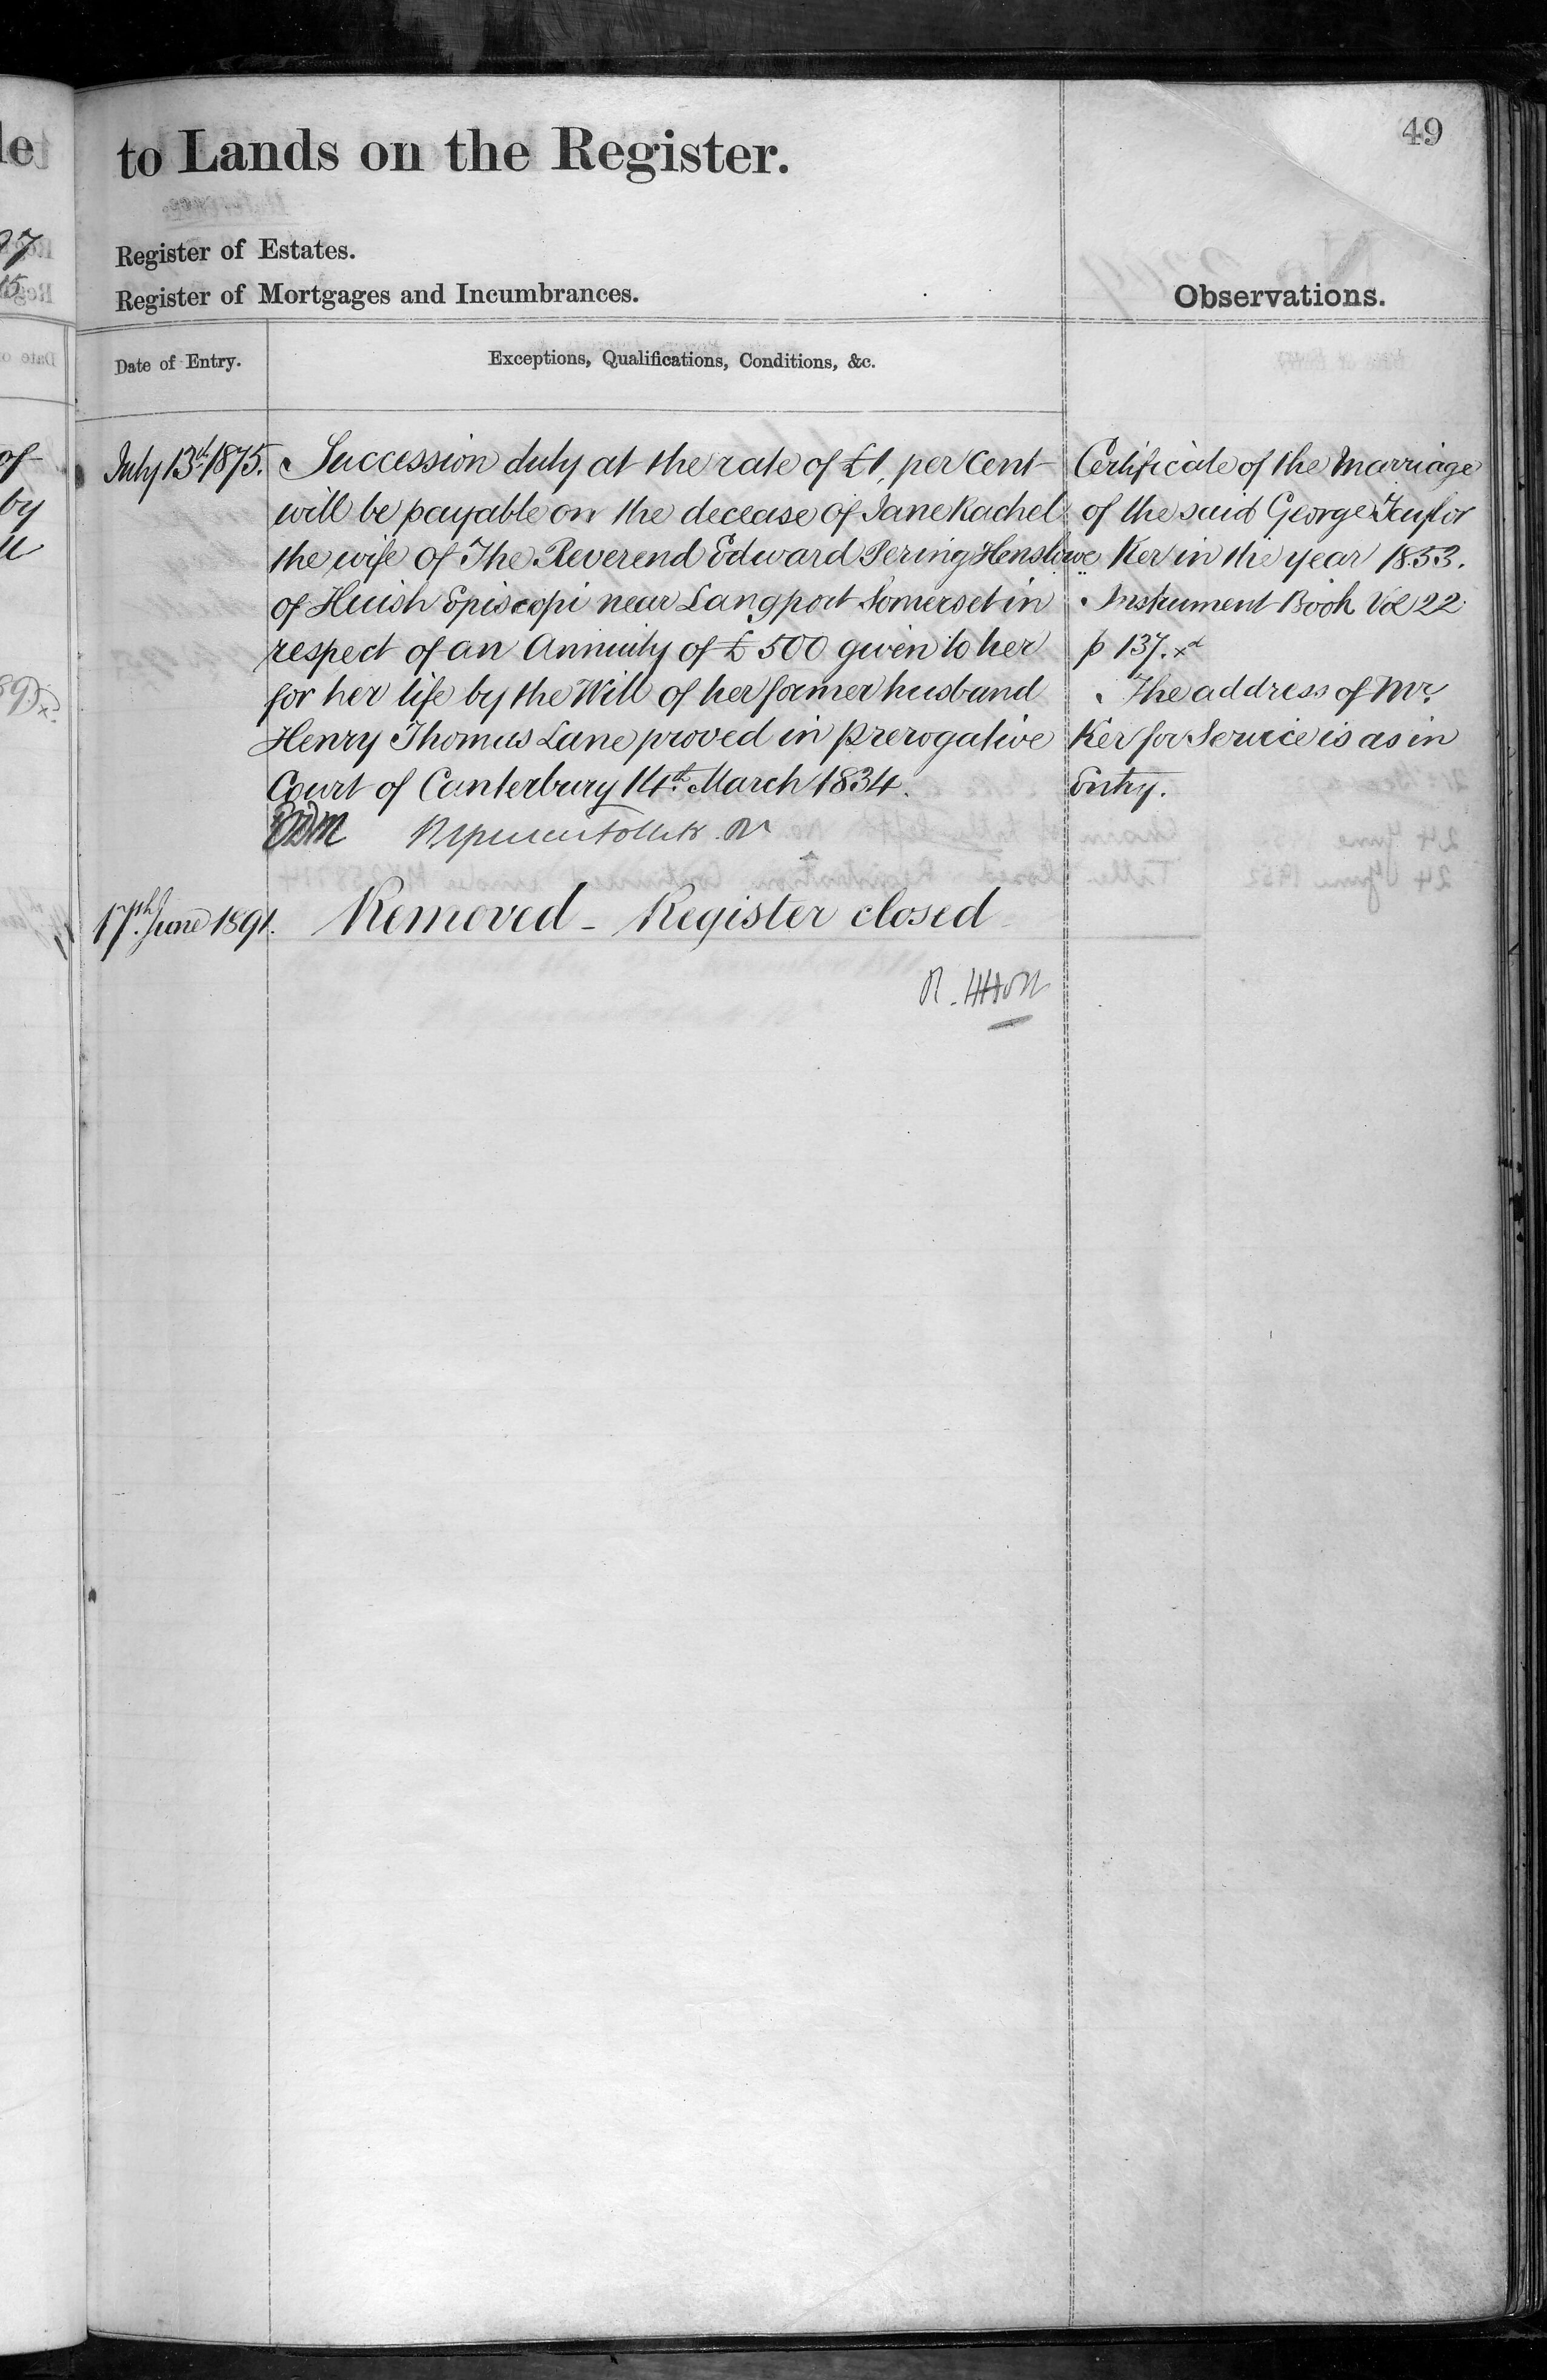 49
to Lands on the Register.
Register of Estates.
Register of Mortgages and Incumbrances.
Observations.
Date of Entry.
Exceptions, Qualifications, Conditions, &c.
July 13th 1875.
Succession duty at the rate of £1, per Cent
will be payable on the decease of Jane Rachel
the wife of The Reverend Edward Pering Henslowe
of Huish Episcopi near Langport Somerset in
respect of an Annuity of £500 given to her
for her life by the Will of her former husband
Henry Thomas Lane proved in Prerogative
Court of Canterbury 14th March 1834.
17th June 1891.
Removed - Register closed
Certificate of the Marriage
of the said George Taylor
Ker in the year 1853.
Instrument Book Vol 22
p 137. xd
The address of Mr.
Ker for Service is as in
Entry.